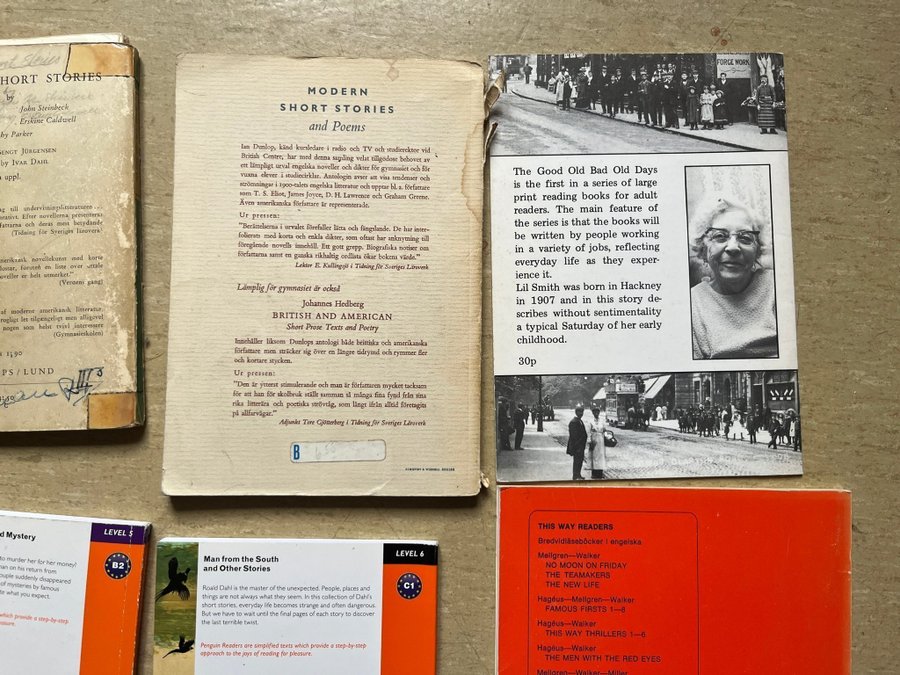 SHORT STORIES
by
John Steinbeck
Erskine Caldwell
by Parker
BENGT JÜRGENSEN
by IVAR DAHL
uppl.
(Tidning för Sveriges läroverk)
(Verdens gang)
(Gymnasieskolen)
PS / LUND
MODERN
SHORT STORIES
and Poems
Ian Dunlop, känd kursledare i radio och TV och studierektor vid
British Centre, har med denna samling velat tillgodose behovet av
ett lämpligt urval engelska noveller och dikter för gymnasiet och för
vuxna elever i studiecirklar. Antologin avser att visa tendenser och
strömningar i 1900-talets engelska litteratur och upptar bl. a. författare
som T. S. Eliot, James Joyce, D. H. Lawrence och Graham Greene.
Även amerikanska författare är representerade.
Ur pressen:
"Berättelserna i urvalet förefaller lätta och fängslande. De har inter-
folierats med korta och enkla dikter, som oftast har anknytning till
föregående novells innehåll. Ett gott grepp. Biografiska notiser om
författarna samt en ganska rikhaltig ordlista ökar bokens värde."
Lektor E. Kullingsjö i Tidning för Sveriges Läroverk
Lämplig för gymnasiet är också
Johannes Hedberg
BRITISH AND AMERICAN
Short Prose Texts and Poetry
Innehåller liksom Dunlops antologi både brittiska och amerikanska
författare men sträcker sig över en längre tidrymd och rymmer fler
och kortare stycken.
Ur pressen:
"Den är ytterst stimulerande och man är författaren mycket tacksam
för att han för skolbruk ställt samman så många fina fynd från sina
rika litterära och poetiska strövtåg, som långt ifrån alltid företagits
på allfarvägar."
Adjunkt Tore Gjötterberg i Tidning för Sveriges Läroverk
B
ALMQVIST & WIKSELL
FORGE WORK
The Good Old Bad Old Days
is the first in a series of large
print reading books for adult
readers. The main feature of
the series is that the books will
be written by people working
in a variety of jobs, reflecting
everyday life as they exper-
ience it.
Lil Smith was born in Hackney
in 1907 and in this story de-
scribes without sentimentality
a typical Saturday of her early
childhood.
30p
d Mystery
LEVEL 5
B2
to murder her for her money!
man on his return from
ouple suddenly disappeared
of mysteries by famous
te what you expect.
which provide a step-by-step
easure.
Man from the South
and Other Stories
LEVEL 6
C1
Roald Dahl is the master of the unexpected. People, places and
things are not always what they seem. In this collection of Dahl's
short stories, everyday life becomes strange and often dangerous.
But we have to wait until the final pages of each story to discover
the last terrible twist.
Penguin Readers are simplified texts which provide a step-by-step
approach to the joys of reading for pleasure.
THIS WAY READERS
Bredvidläseböcker i engelska
Mellgren—Walker
NO MOON ON FRIDAY
THE TEAMAKERS
THE NEW LIFE
Hagéus—Mellgren—Walker
FAMOUS FIRSTS 1—8
Hagéus—Walker
THIS WAY THRILLERS 1—6
Hagéus—Walker
THE MEN WITH THE RED EYES
Mellgren—Walker—Miller